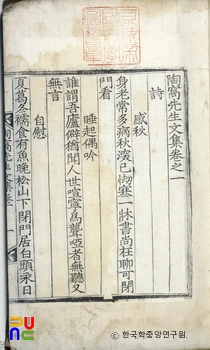 陶窩先生文集卷之一
詩
感秋
身老常多病秋湥已㤼寒一牀書尚在聊可閉
門看
睡起偶吟
誰謂吾廬僻猶聞人世喧寧爲聾啞者無聽又
無言
自慰
夏葛冬食有魚晚松山下閉門居白頭永日
陶窩先生文集卷一
ⓒ한국학중앙연구원